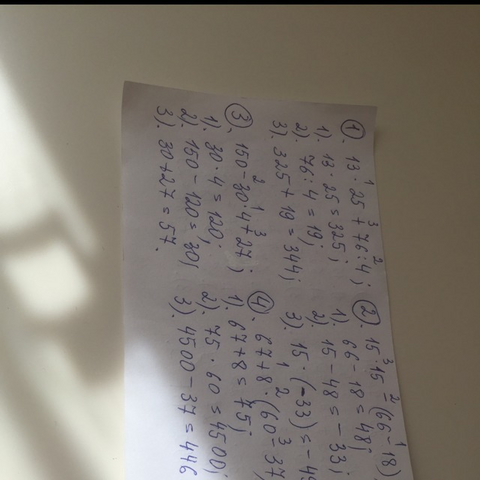 1 3 2
①. 13 · 25 + 76 : 4;
1). 13 · 25 = 325;
2). 76 : 4 = 19;
3). 325 + 19 = 344;
3 2 1
②. 15 · 15 - (66 - 18)
1). 66 - 18 = 48;
2). 15 - 48 = -33;
3). 15 · (-33) = -49
2 1 3
③. 150 - 30 · 4 + 27;
1). 30 · 4 = 120;
2). 150 - 120 = 30;
3). 30 + 27 = 57.
1 2 3
④. 67 + 8 · (60 - 37
1). 67 + 8 = 75;
2). 75 · 60 = 4500;
3). 4500 - 37 = 446